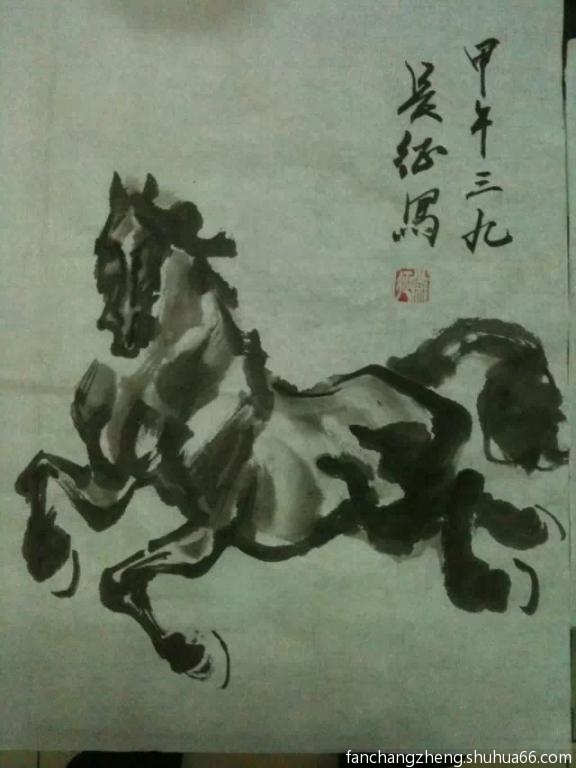 甲午三九
長征寫
fanchangzheng.shuhua66.com